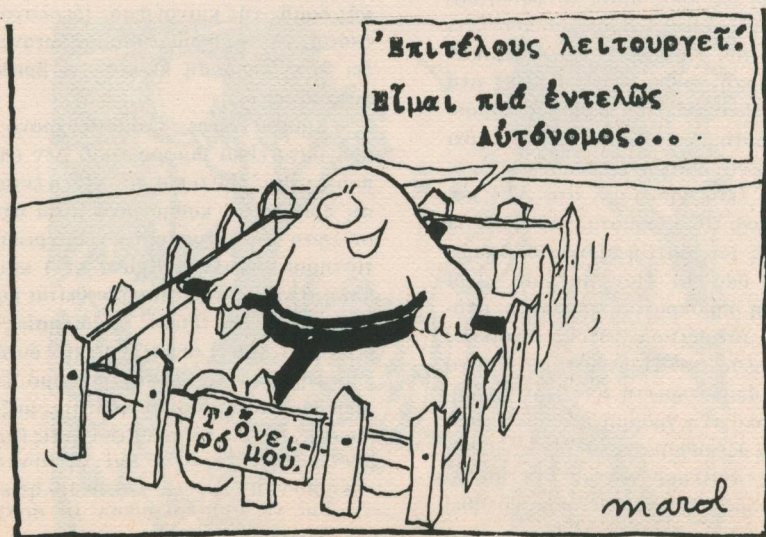 Ἐπιτέλους λειτουργεῖ!
Εἶμαι πιά ἐντελῶς
Αὐτόνομος...
Τ' ὄνει-
ρό μου.
marol